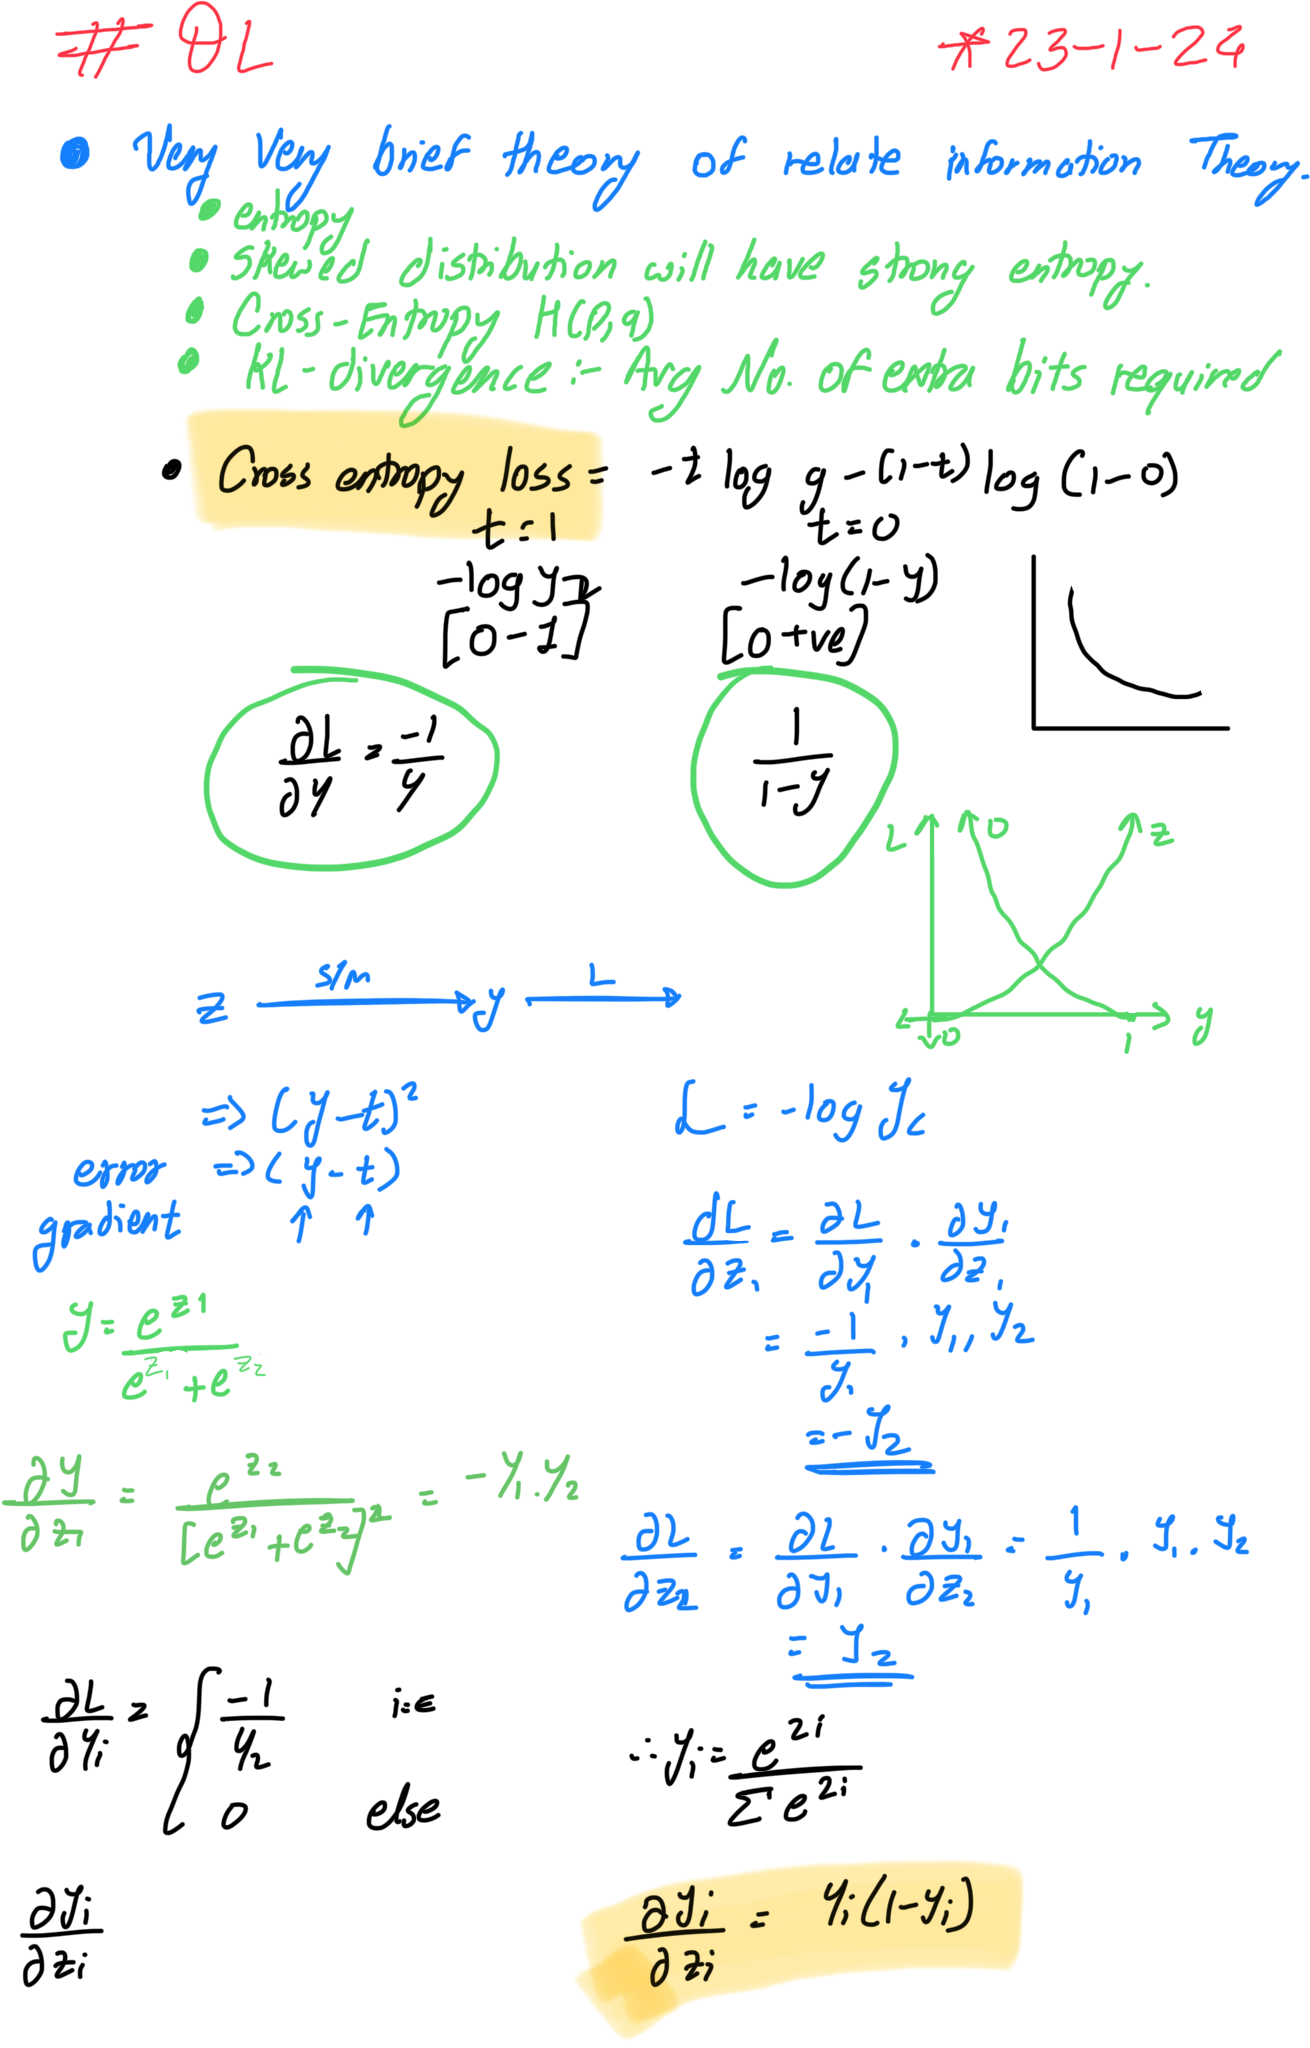 # DL
*23-1-24
• Very Very brief theory of relate information Theory.
• entropy
• skewed distribution will have strong entropy.
• Cross-Entropy H(P,q)
• KL-divergence :- Avg No. of extra bits required
• Cross entropy loss = -t log y -(1-t) log (1-0)
t=1 t=0
-log y -log(1-y)
[0-1] [0+ve]
∂L/∂y = -1/y 1/(1-y)
L 0 z
z s/m → y L →
L 0 1 y
=> (y-t)² L = -log yc
error => (y-t)
gradient ↑ ↑
dL/∂z₁ = ∂L/∂y₁ . ∂y₁/∂z₁
y = e^z1/(e^z₁ + e^z₂)
= -1/y₁ . y₁, y₂
= -y₂
∂y/∂z₁ = e^z₂/[e^z₁ + e^z₂]² = -y₁.y₂
∂L/∂z₂ = ∂L/∂y₁ . ∂y₁/∂z₂ = 1/y₁ . y₁ . y₂
= y₂
∂L/∂yi = { -1/y₂ i=c
0 else
∴ yi = e^2i/Σ e^2i
∂yi/∂zi
∂yi/∂zi = yi(1-yi)